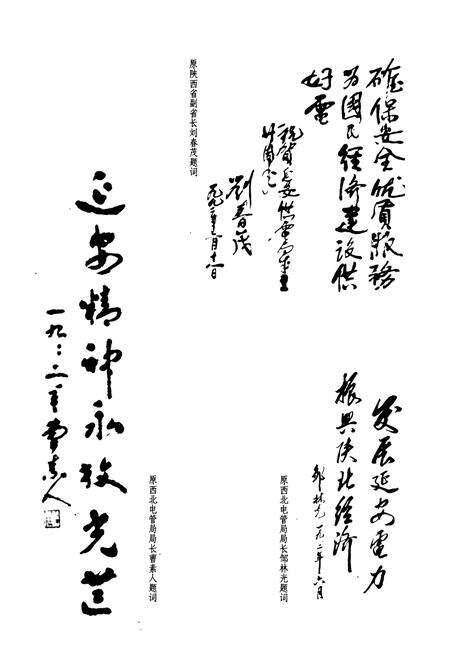 确保安全优质服务
为国民经济建设供
好电
祝贺延安供电局建立
廿周年
刘春茂
一九九二年六月十八日
原陕西省副省长刘春茂题词
发展延安电力
振兴陕北经济
邹林光 一九九二年六月
原西北电管局局长邹林光题词
延安精神永放光芒
一九九二年 曹素人
原西北电管局局长曹素人题词